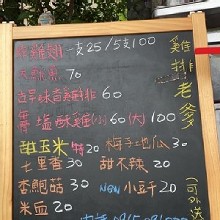 雞翅 一支25/5支100
70
古早味香雞排 60
鹽酥雞(小)60(大)100
甜玉米 20 梅子地瓜 30
七里香 30 甜不辣 20
杏鮑菇 30 New 小豆干 20
米血 20
雞排老爹